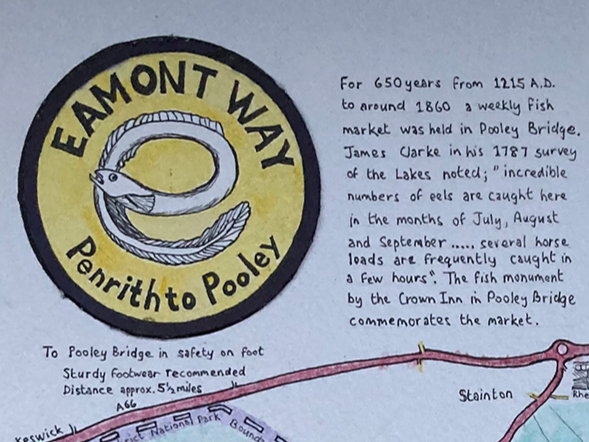 EAMONT WAY
Penrith to Pooley
For 650 years from 1215 A.D.
to around 1860 a weekly fish
market was held in Pooley Bridge.
James Clarke in his 1787 survey
of the Lakes noted; "incredible
numbers of eels are caught here
in the months of July, August
and September ..... several horse
loads are frequently caught in
a few hours". The fish monument
by the Crown Inn in Pooley Bridge
commemorates the market.
To Pooley Bridge in safety on foot
Sturdy footwear recommended
Distance approx. 5½ miles
A66
Stainton
Rhe
Keswick
rict National Park Bound